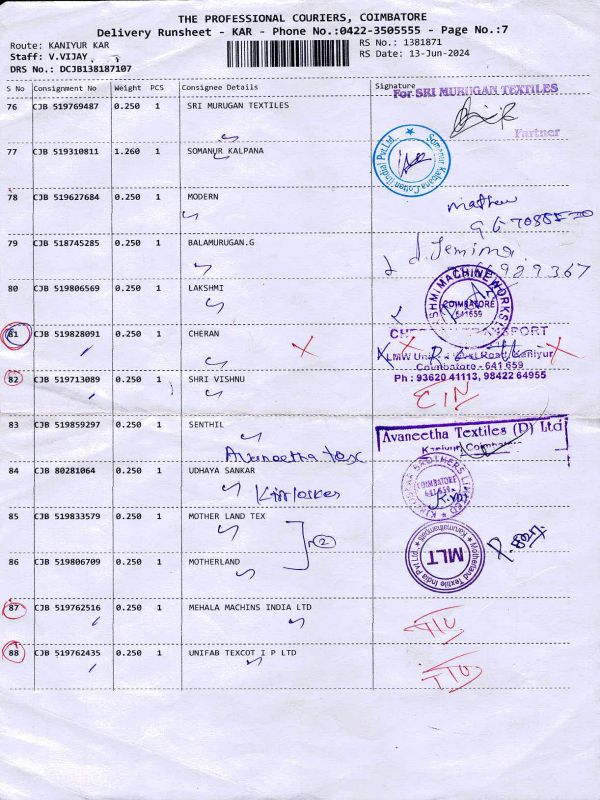 THE PROFESSIONAL COURIERS, COIMBATORE
Delivery Runsheet - KAR - Phone No.:0422-3505555 - Page No.:7
Route: KANIYUR KAR
RS No.: 1381871
Staff: V.VIJAY
RS Date: 13-Jun-2024
DRS No.: DCJB138187107
S No Consignment No Weight PCS Consignee Details Signature
For SRI MURUGAN TEXTILES
76 CJB 519769487 0.250 1 SRI MURUGAN TEXTILES
Partner
77 CJB 519310811 1.260 1 SOMANUR KALPANA
Somanur Kalpana Cotton (India) Pvt.Ltd.
78 CJB 519627684 0.250 1 MODERN
Mathew
79 CJB 518745285 0.250 1 BALAMURUGAN.G
J. Jemima
80 CJB 519806569 0.250 1 LAKSHMI
SHMI MACHINE WORKS
COIMBATORE
641659
81 CJB 519828091 0.250 1 CHERAN
LMW Unit Road, Kaniyur
Coimbatore - 641 659
Ph : 93620 41113, 98422 64955
82 CJB 519713089 0.250 1 SHRI VISHNU
83 CJB 519859297 0.250 1 SENTHIL
Avaneetha tex
Avaneetha Textiles (P) Ltd
Kaniyur, Coimbatore
84 CJB 80281064 0.250 1 UDHAYA SANKAR
Kirloskar
BROTHERS LIMITED
COIMBATORE
641 659
85 CJB 519833579 0.250 1 MOTHER LAND TEX
2
Motherland Textile India Pvt Ltd.
MLT
86 CJB 519806709 0.250 1 MOTHERLAND
87 CJB 519762516 0.250 1 MEHALA MACHINS INDIA LTD
88 CJB 519762435 0.250 1 UNIFAB TEXCOT I P LTD